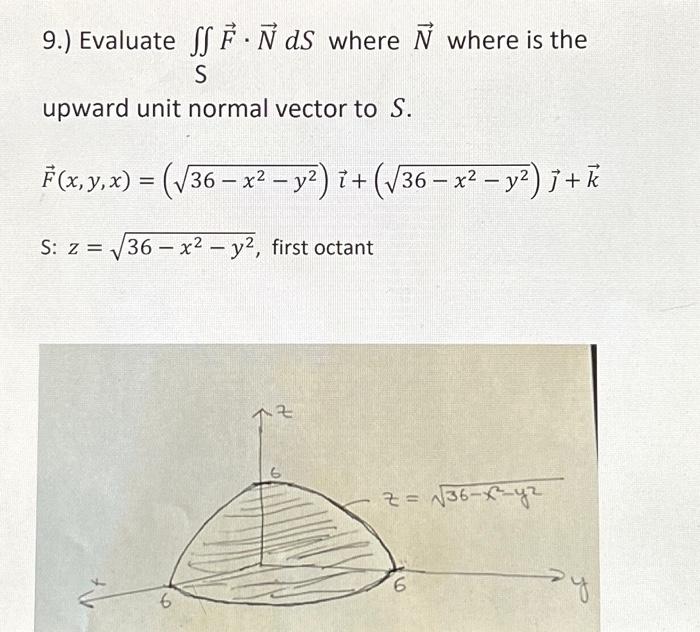 9.) Evaluate ∬ F⃗ · N⃗ dS where N⃗ where is the
S
upward unit normal vector to S.
F⃗(x, y, x) = (√36 − x² − y²) i⃗ + (√36 − x² − y²) j⃗ + k⃗
S: z = √36 − x² − y², first octant
z
6
z = √36-x²-y²
x
6
6
y